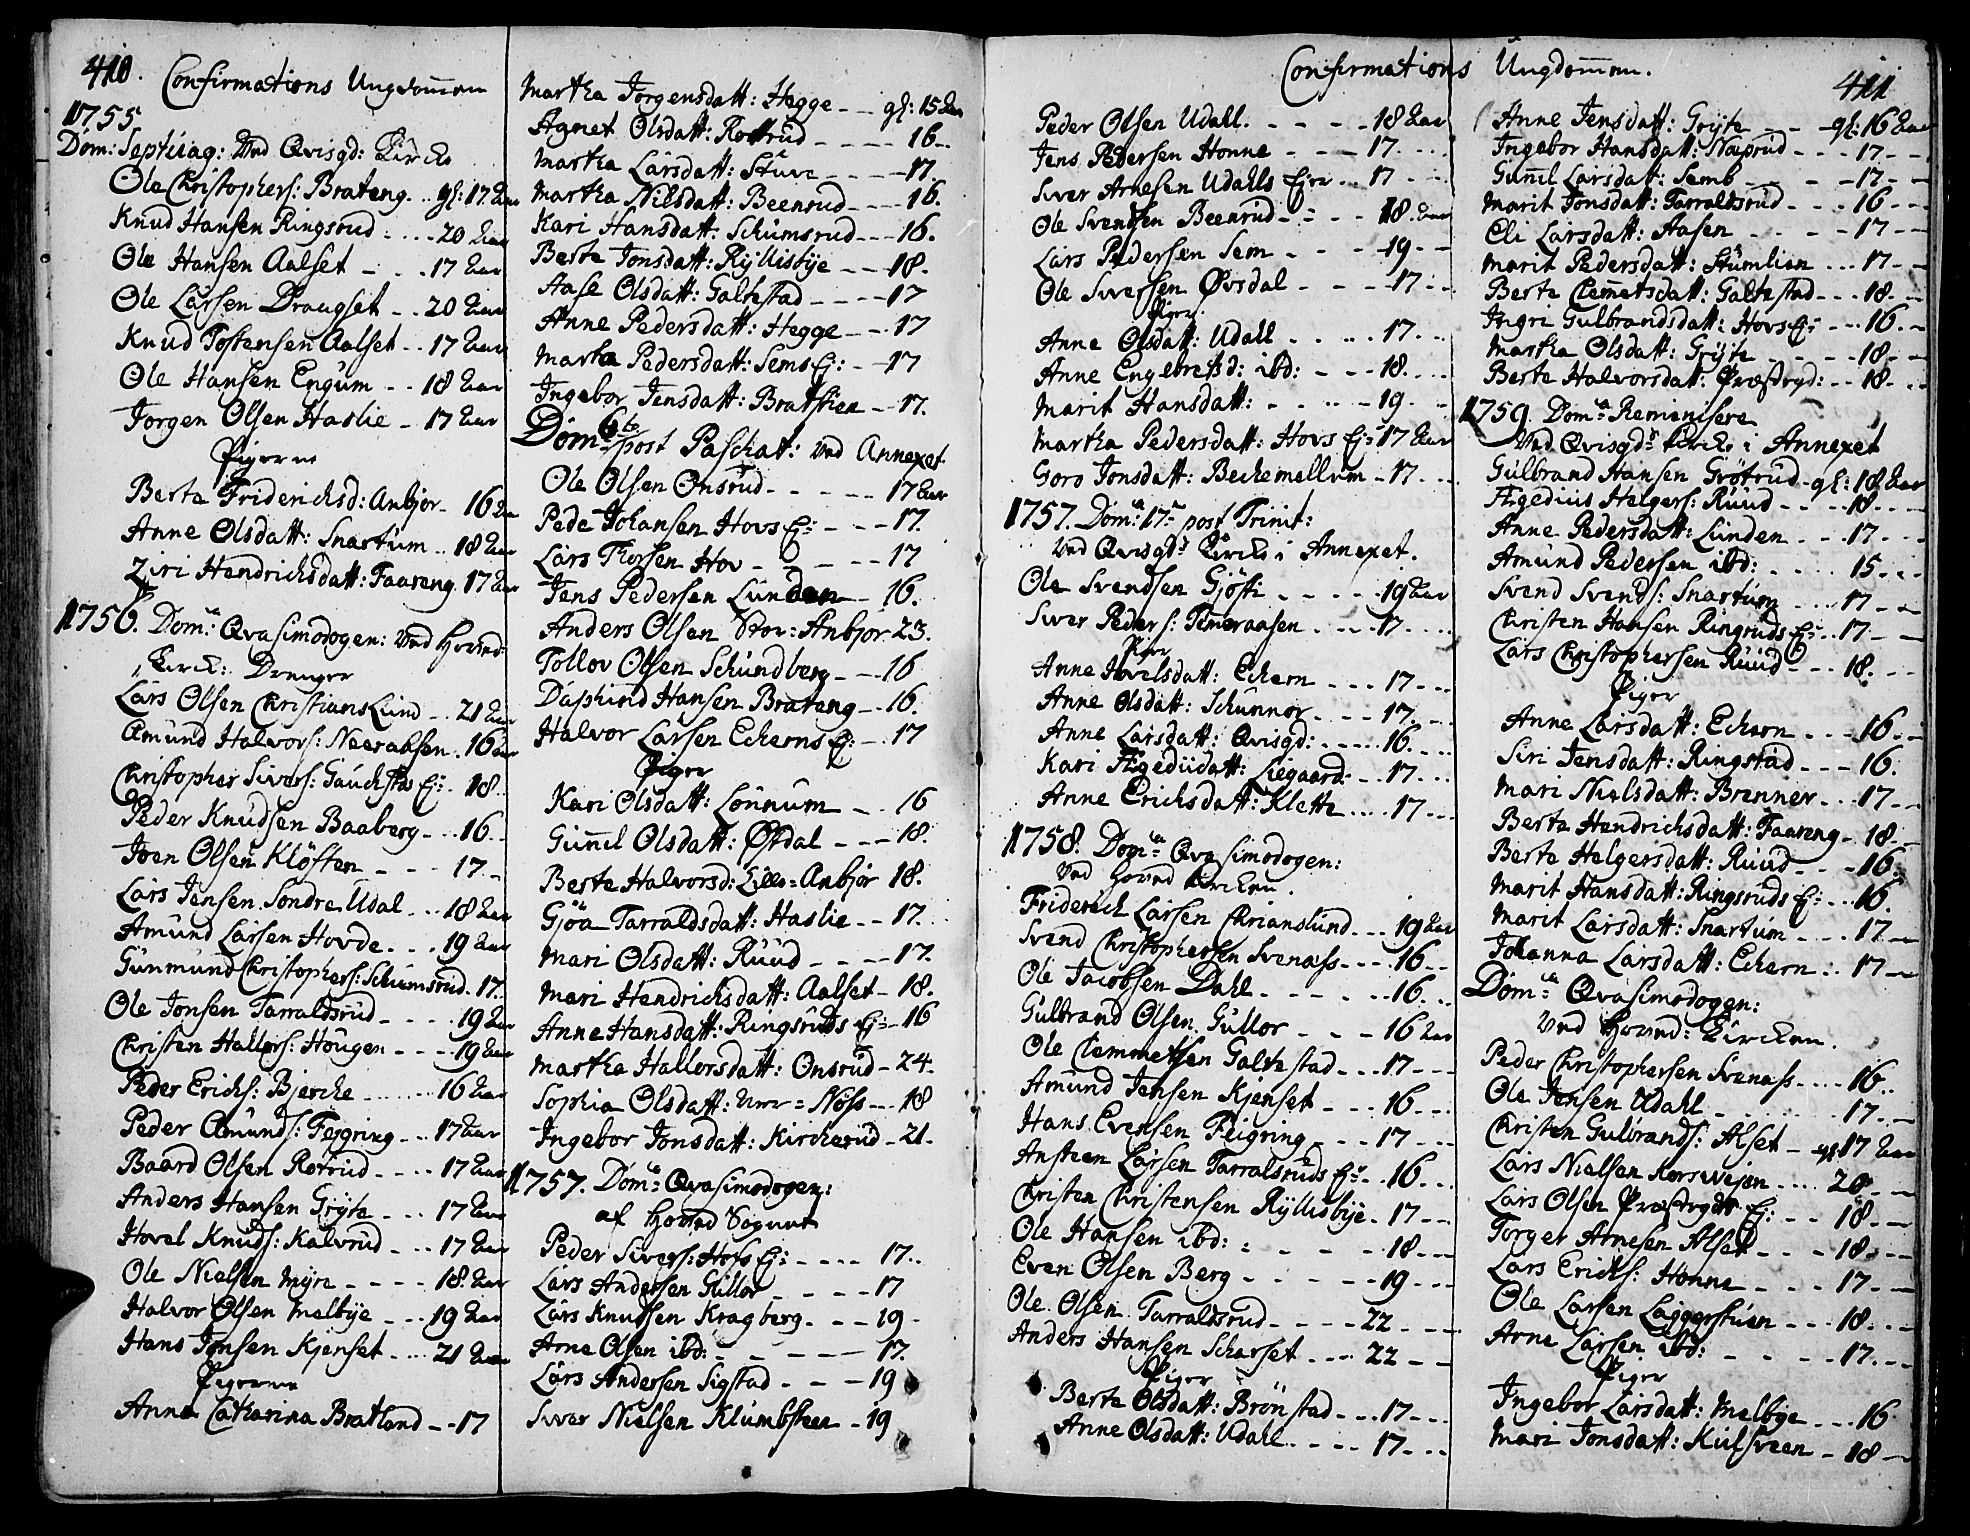 410. Confirmations Ungdommen
1755
Dom: Septuag: Ved Qvisgd: Kircke
Ole Christophers: Brateng .. gl: 17 Aar
Knud Hansen Ringsrud .... 20 Aar
Ole Hansen Aalset - . . 17 Aar
Ole Larsen Draugset .. 20 Aar
Knud Tostensen Aalset .. 17 Aar
Ole Hansen Engum .. 18 Aar
Jorgen Olsen Haslie - 17 Aar
Pigerne
Berte Friderichsd: Anbjor - 16 Aar
Anne Olsdatt: Snartum .. 18 Aar
Ziri Hendrichsdatt: Faareng. 17 Aar
1756. Dom: Qvasimodogen: Ved Hovind
Kirck: Drenger
Lars Olsen Christianslund .. 21 Aar
Amund Halvors: Neeraasen . 16 Aar
Christopher Sivers: Ej: - 18.
Peder Knudsen Baaberg - .. 16 -
Joen Olsen Klöften - - - 17 -
Lars Jensen Sondre Udal ... 18 Aar
Amund Larsen Hovde. ... 19 Aar
Gunmund Christophers: Schumsrud. 17.
Ole Jonsen Tarraldsrud - - - - 19 Aar
Christen Hallors: Hougen - - - - 19 Aar
Peder Erichs: Bjercke ...... 16 Aar
Peder Amunds: Fejgring - .. 17 Aar
Baard Olsen Rotrud - - - - 17 Aar
Anders Hansen Gryte - .. 17 Aar
Hovel Knuds: Kalvrud - ... 17 Aar
Ole Nielsen Myre - - - - 18. Aar
Halvor Olsen Melbye - .. 19 Aar
Hans Jonsen Kjenset - ... 21 Aar
Pigerne
Anne Catharina Bratland - - 17
Martha Jorgensdatt: Hegge - - gl: 15 Aar
Agnet Olsdatt: Rottrud - - - - 16 -
Martha Larsdatt: Stuve - - - - 17.
Martha Nilsdatt: Beenrud - - - 16.
Kari Hansdatt: Schumsrud - - - 16.
Berte Jonsdatt: Ryllisbye - - 18.
Aase Olsdatt: Galtestad - - - - 17
Anne Pedersdatt: Hegge - - - 17
Martha Pedersdatt: Sems Ej: - 17
Ingebor Jensdatt: Bratlien - - 17.
Dom: 6te post Paschat: ved Annexet
Ole Olsen Onsrud - - - - - 17 Aar
Pede Johansen Hovs Ej: - - - 17.
Lars Thorsen Hov - - - - 17
Jens Pedersen Lunden - 16.
Anders Olsen Stor = Anbjor 23.
Tollov Olsen Schundberg - - 16
Daphind Hansen Brateng - . 16.
Halvor Larsen Echerns Ej: - 17
Piger
Kari Olsdatt: Lönnum - . . 16
Gunnil Olsdatt: Østdal - - - 18.
Berte Halvorsd: Lille = Anbjor 18.
Gjöa Tarraldsdatt: Haslie - - 17.
Mari Olsdatt: Ruud - - - - 17.
Mari Hendrichsdatt: Aalset - 18.
Anne Hansdatt: Ringsruds Ej: - 16
Martha Hallorsdatt: Onsrud - 24.
Sophia Olsdatt: Nöss - - 18
Ingebor Jonsdatt: Kircherud - 21.
1757. Dom: Qvasimodogen:
af Hovind Sognet
Peder Sivers: Hofs Ej: - - - - 17..
Lars Andersen Gullor - - - - 17
Lars Knudsen Kragberg. - - - 19 -
Arne Olsen ibd: - - - - - 17.
Lars Andersen Sigstad - - - 19
Siver Nielsen Klumbsteen - 19
Confirmations Ungdommen. 411
Peder Olsen Udall. - - - - 18 Aar
Jens Pedersen Honne - - - 17. ...
Siver Arnesen Udahls Ejer ... 17 ...
Ole Svendsen Beenrud - - - - 18. Aar
Lars Pedersen Sem - - - 19 - -
Ole Siversen Øvsdal - - - - 17 - .
Piger
Anne Olsdatt: Udall - - .... 17. ..
Anne Engebretsd: ibd: - - - 18. ...
Marit Hansdatt: - - ... - 19 - -
Martha Pedersdatt: Hovs Ej: 17 Aar
Goro Jonsdatt: Beckemellum - 17 ...
1757. Dom: 17. post Trinit:
Ved Qvisgd: Kircke i Annexet.
Ole Svendsen Gjösti - - - - - 19 Aar
Siver Peders: Temeraasen . . . . 17. ...
Piger
Anne Hovelsdatt: Echern - - - 17 - ..
Anne Olsdatt: Schunnor - - - - 17. ...
Anne Larsdatt: Qvisgd: - .... 16. ...
Kari Ægediidatt: Liegaard: - .. 17 ...
Anne Erichsdatt: Klette .... 17 ...
1758. Dom: Qvasimodogen:
Ved Hovind Kircken.
Friderich Larsen Chrianslund ... 19 Aar
Svend Christophersen Svenass - - - 16 - -
Ole Jacobsen Dahl - - - - - 16. ..
Gulbrand Olsen Gullor - - - 16 Aar
Ole Clemmetsen Galtestad - - .. 17 - - -
Amund Jensen Kjenset - - - 16 - ..
Hans Evensen Feigring - - - 17 - ...
Ansteen Larsen Tarralsruds Ej: - . 16 - - -
Christen Christensen Ryllisbye - 17 - - -
Ole Hansen ibd: : - - - - 18 - - -
Even Olsen Berg - - - - - - 19 - - -
Ole Olsen Tarraldsrud - - - - 22 - - - -
Anders Hansen Scharset ... 22 - -
Piger
Berte Olsdatt: Brönstad - - - . 17 - ...
Anne Olsdatt: Udahl - - - - 17 - - -
Anne Jensdatt: Gryte - - - gl: 16 Aar
Ingebor Hansdatt: Næprud - - - 17. - - -
Gunnil Larsdatt: Semb - - - 17 - - -
Marit Jonsdatt: Tarraldsrud - - - 16 - - -
Eli Larsdatt: Aasen - - - - 17 - -
Marit Pedersdatt: Stumlien ... 17 - - -
Berte Clemmetsdatt: Galtestad - - .. 18. - -
Ingri Gulbrandsdatt: Hovs Ej: - ... 16. - -
Martha Olsdatt: Gryte - - - - 18. - -
Berte Halvorsdatt: Præstryd: - - 18. ..
1759. Dom: Reminisere
Ved Qvisgd: Kircke i Annexet
Gulbrand Hansen Grötrud - gl: 18 Aar
Ægedius Helgers: Ruud - - - . 18. ...
Anne Pedersdatt: Lunden - - . 17. ...
Amund Pedersen ibd: . - - . 15 - ..
Svend Svends: Snartum ... 17 - -
Christen Hansen Ringruds Ej: ... 17. - -
Lars Christophersen Ruud - - .. 18. - -
Piger
Anne Larsdatt: Echern - - - 16. - -
Siri Jensdatt: Ringstad - - - 16.
Mari Nielsdatt: Brenner - .. 17 - -
Berte Hendrichsdatt: Faareng - 18 - -
Berte Helgersdatt: Ruud - - - 16:
Marit Hansdatt: Ringsruds Ej: - .. 16.
Marit Larsdatt: Snartum - - - 17. - -
Johanna Larsdatt: Echern .. 17 - -
Dom: Qvasimodogen:
Ved Hovind: Kircken.
Peder Christophersen Svenass - ... 16. .
Ole Jensen Udahl - . . . . . 17. - -
Christen Gulbrands: Alset - gl: 17 Aar
Lars Nielsen Korsvejen .... 20. - -
Lars Olsen Præstrydtt Ej: - - 18 - - -
Torger Arnesen Alset - - - 18. - -
Lars Erichs: Honne - - - - 17. - -
Ole Larsen Laggerstuen - - - 18. - -
Arne Larsen ibd: - - - - - 17. - -
Piger
Ingebor Larsdatt: Melbye - - - 16.
Mari Jonsdatt: Kulsveen - 18 - -